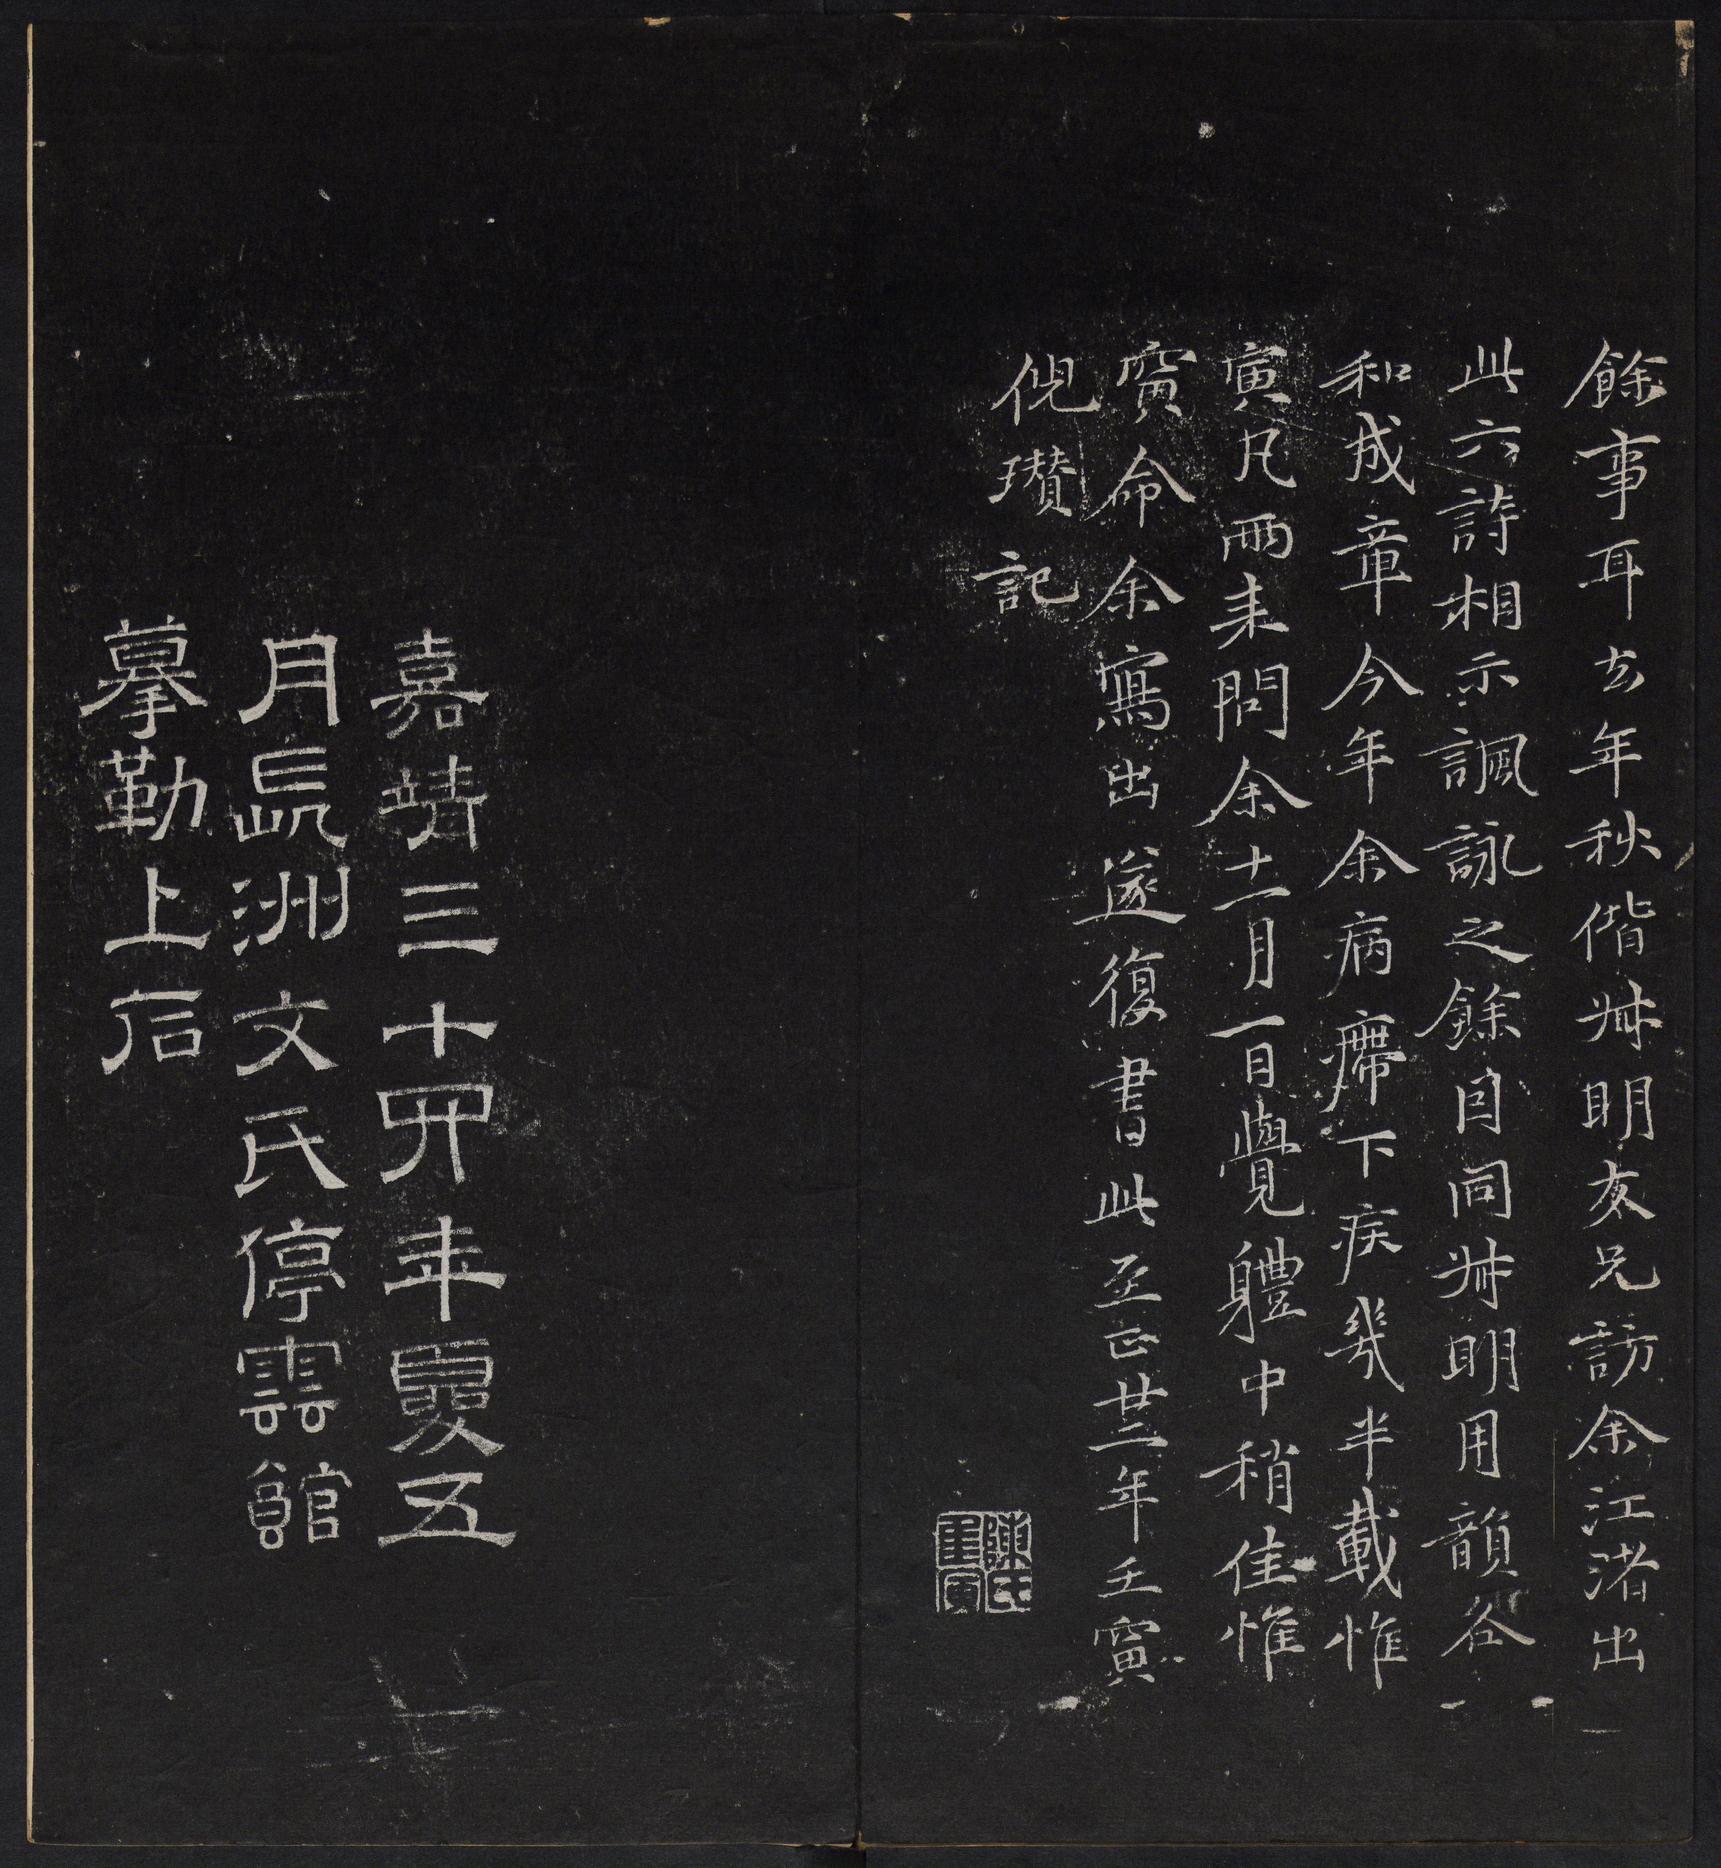 餘事耳去年秋偕叔明友兄訪余江渚出
此六詩相示諷詠之餘因同叔明用韻各
和成章今年余病㿃下疾幾半載惟
寅凡兩来問余十一月一日覺軆中稍佳惟
寅命余寫出遂復書此至正廿二年壬寅
倪瓚記
陳氏隹寅
嘉靖三十四年夏五
月長洲文氏停雲館
摹勒上石